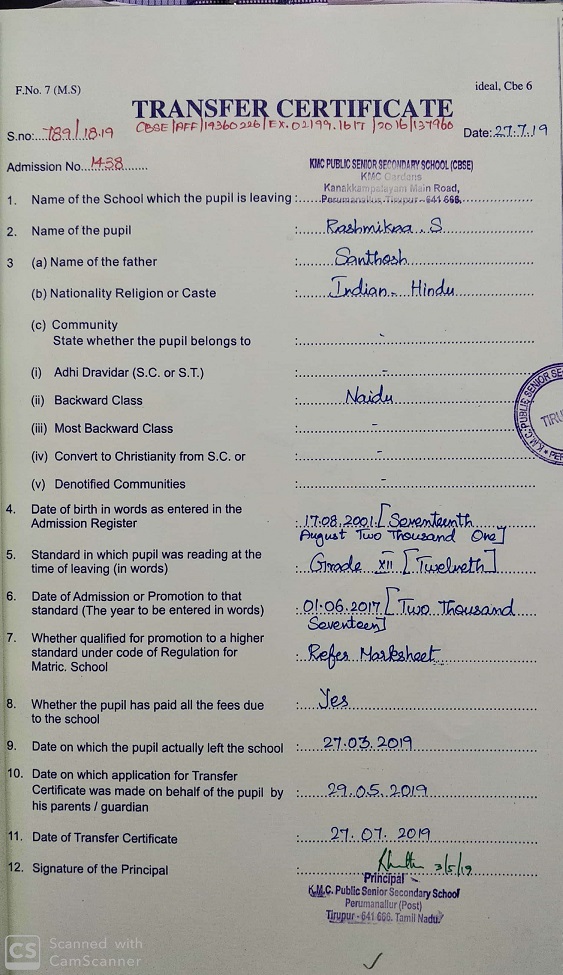 F.No. 7 (M.S)
ideal, Cbe 6
TRANSFER CERTIFICATE
CBSE/AFF/19360226/EX.02199.1617/2016/137960
S.no: 789/18.19
Date: 27.7.19
Admission No. 1438
KMC PUBLIC SENIOR SECONDARY SCHOOL (CBSE)
KMC Gardens
Kanakkampalayam Main Road,
Perumanallur, Tirupur - 641 666.
1. Name of the School which the pupil is leaving :
2. Name of the pupil : Rashmikaa . S
3 (a) Name of the father : Santhosh
(b) Nationality Religion or Caste : Indian - Hindu
(c) Community
State whether the pupil belongs to : -
(i) Adhi Dravidar (S.C. or S.T.) : -
(ii) Backward Class : Naidu
(iii) Most Backward Class : -
(iv) Convert to Christianity from S.C. or : -
(v) Denotified Communities : -
4. Date of birth in words as entered in the
Admission Register : 17.08.2001 [Seventeenth
August Two Thousand One]
5. Standard in which pupil was reading at the
time of leaving (in words) : Grade XII [Twelveth]
6. Date of Admission or Promotion to that
standard (The year to be entered in words) : 01.06.2017 [Two Thousand
Seventeen]
7. Whether qualified for promotion to a higher
standard under code of Regulation for : Refer Marksheet
Matric. School
8. Whether the pupil has paid all the fees due : Yes
to the school
9. Date on which the pupil actually left the school : 27.03.2019
10. Date on which application for Transfer
Certificate was made on behalf of the pupil by : 29.05.2019
his parents / guardian
11. Date of Transfer Certificate : 27.07.2019
12. Signature of the Principal : 3/5/19
Principal
K.M.C. Public Senior Secondary School
Perumanallur (Post)
Tirupur - 641 666. Tamil Nadu.
K.M.C. PUBLIC SENIOR SE
TIRU
PER
CS Scanned with
CamScanner